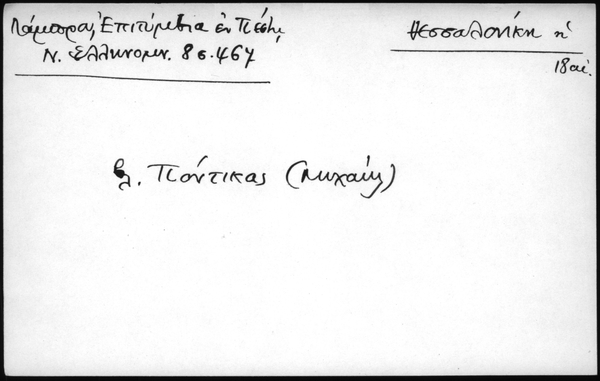 Λάμπρου, Ἐπιτύμβια ἐν Πέστῃ,
Ν. Ἑλληνομν. 8 σ. 467
Θεσσαλονίκη ἡ
18 αἰ.
βλ. Πόντικας (Μιχαήλ)